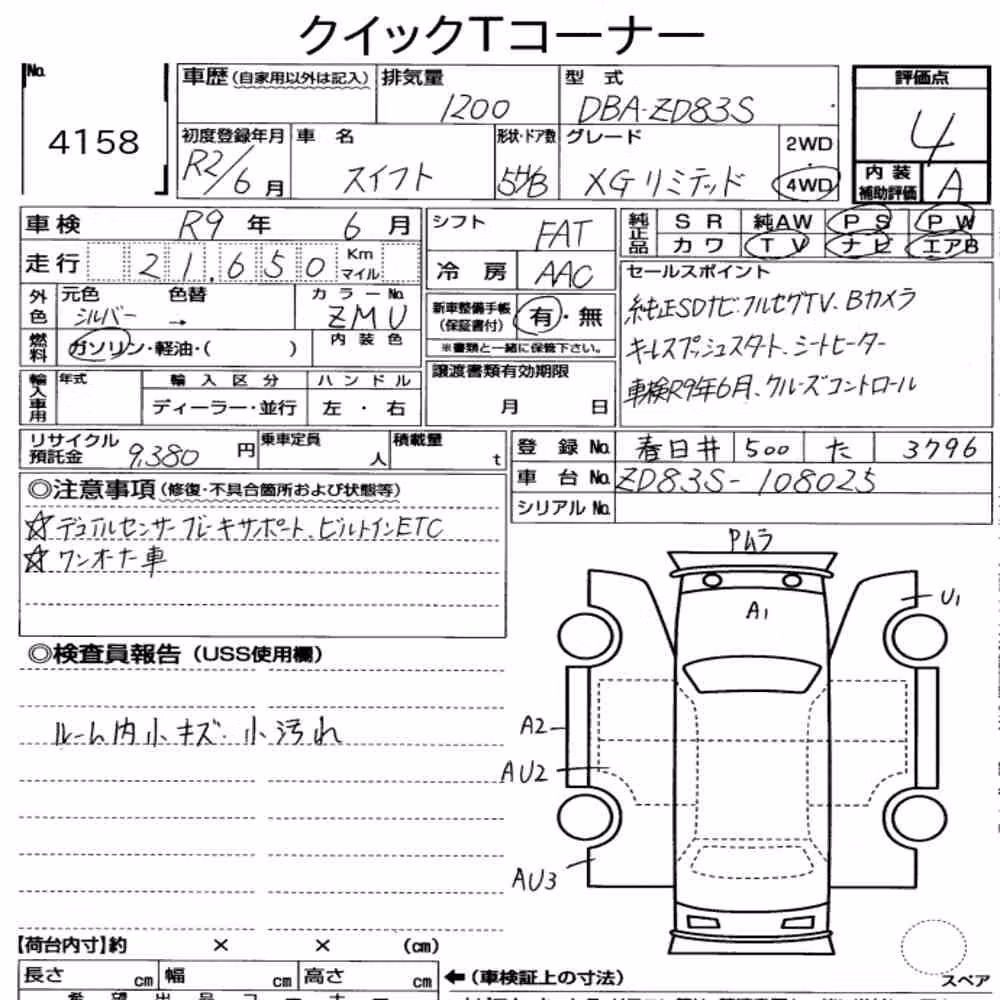 クイックTコーナー
No. 4158
車歴(自家用以外は記入) 排気量 1200 型式 DBA-ZD83S
評価点 4
初度登録年月 R2/6月 車名 スイフト 形状・ドア数 5HB グレード XGリミテッド 2WD 4WD
内装補助評価 A
車検 R9年 6月 シフト FAT 純正品 SR 純AW PS PW
カワ TV ナビ エアB
走行 21,650 Km マイル 冷房 AAC
セールスポイント
外色 元色 シルバー 色替 → カラーNo. ZMU
新車整備手帳(保証書付) 有・無
※書類と一緒に保管下さい。
純正SDナビ・フルセグTV、Bカメラ
燃料 ガソリン・軽油・( ) 内装色
キーレスプッシュスタート、シートヒーター
輸入車用 年式 輸入区分 ハンドル 譲渡書類有効期限
車検R9年6月、クルーズコントロール
ディーラー・並行 左・右 月 日
リサイクル預託金 9,380円 乗車定員 人 積載量 t
登録No. 春日井 500 た 3796
車台No. ZD83S-108025
シリアルNo.
◎注意事項(修復・不具合箇所および状態等)
☆デュアルセンサーブレーキサポート、ビルトインETC
☆ワンオーナー車
Pムラ
A1
U1
◎検査員報告(USS使用欄)
ルーム内小キズ・小汚れ
A2
AU2
AU3
【荷台内寸】約 × × (cm)
長さ cm 幅 cm 高さ cm ←(車検証上の寸法)
スペア